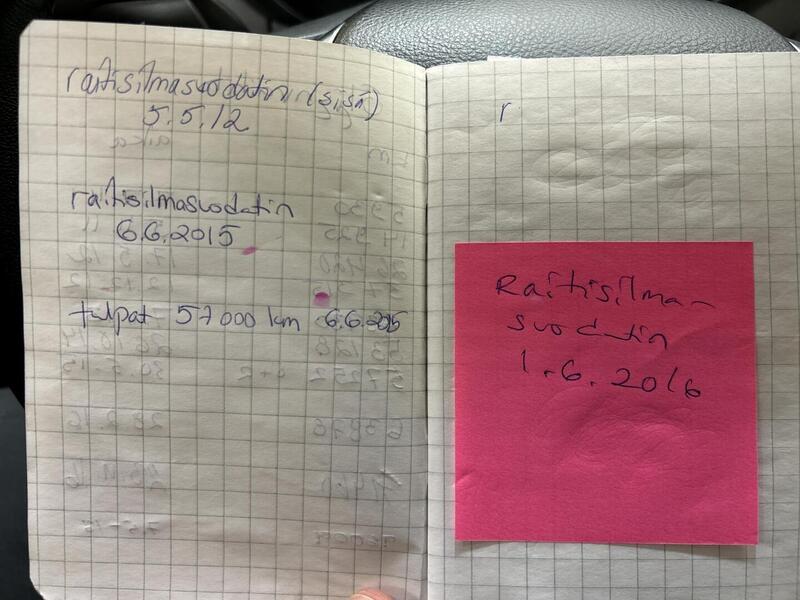 raitisilmasuodatin (sisä)
5.5.12
raitisilmasuodatin
6.6.2015
tulpat 57000 km 6.6.2015
r
Raitisilman
suodatin
1.6.2016